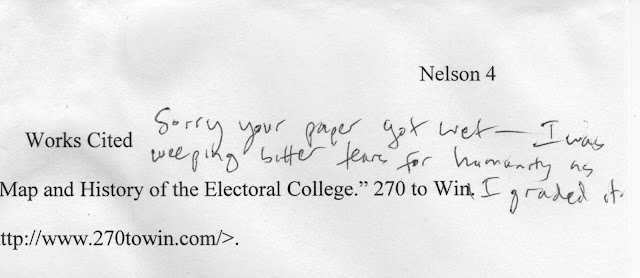 Nelson 4
Sorry your paper got wet — I was
Works Cited
weeping bitter tears for humanity as
Map and History of the Electoral College.” 270 to Win.
I graded it.
ttp://www.270towin.com/>.